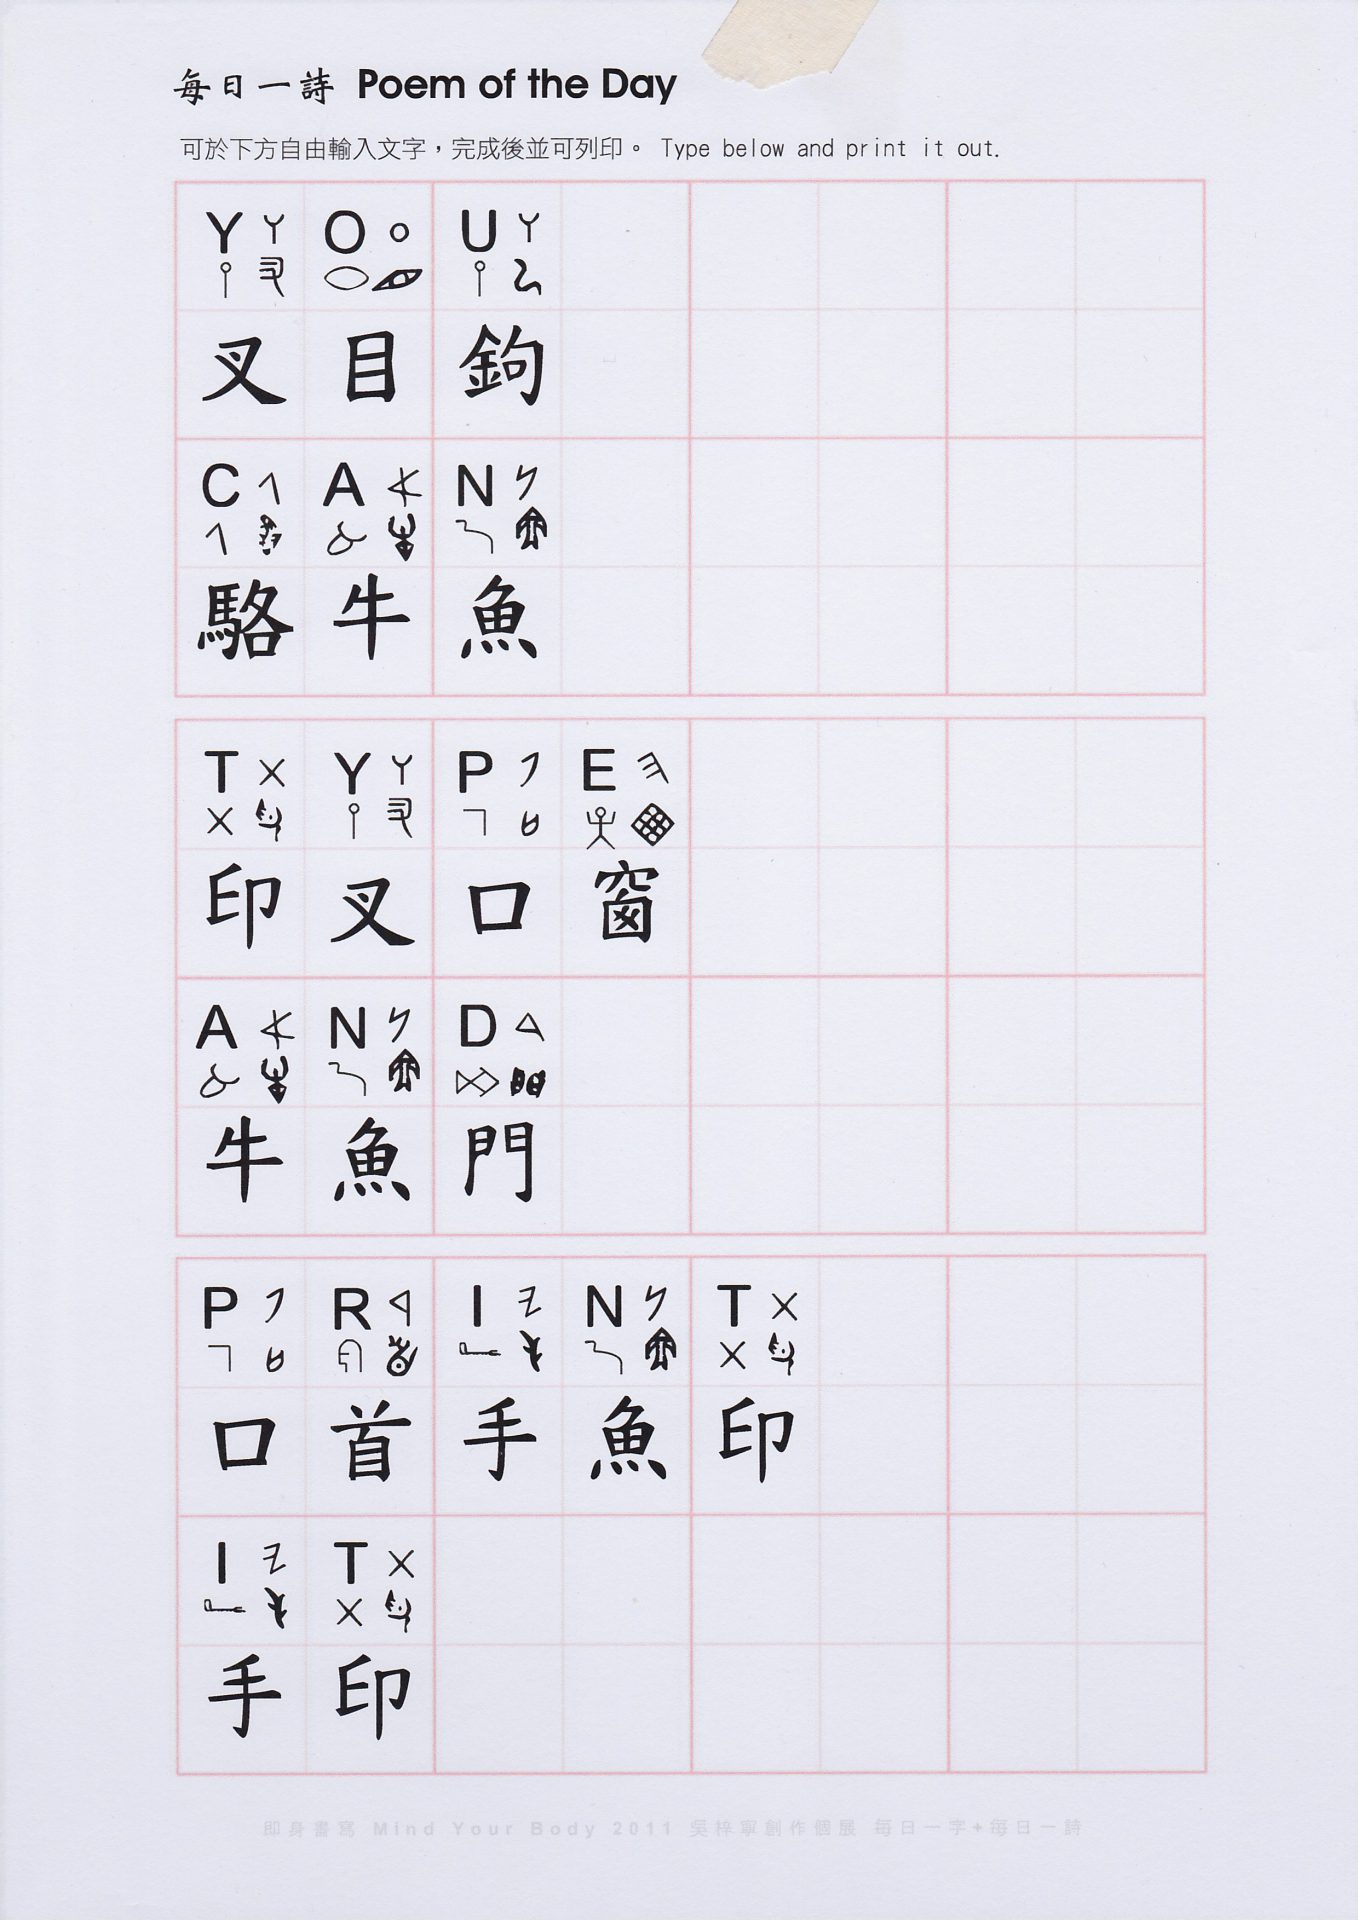 每日一詩 Poem of the Day
可於下方自由輸入文字，完成後並可列印。 Type below and print it out.
Y O U
叉 目 鉤
C A N
駱 牛 魚
T Y P E
印 叉 口 窗
A N D
牛 魚 門
P R I N T
口 首 手 魚 印
I T
手 印
即身書寫 Mind Your Body 2011 吳梓寧創作個展 每日一字+每日一詩